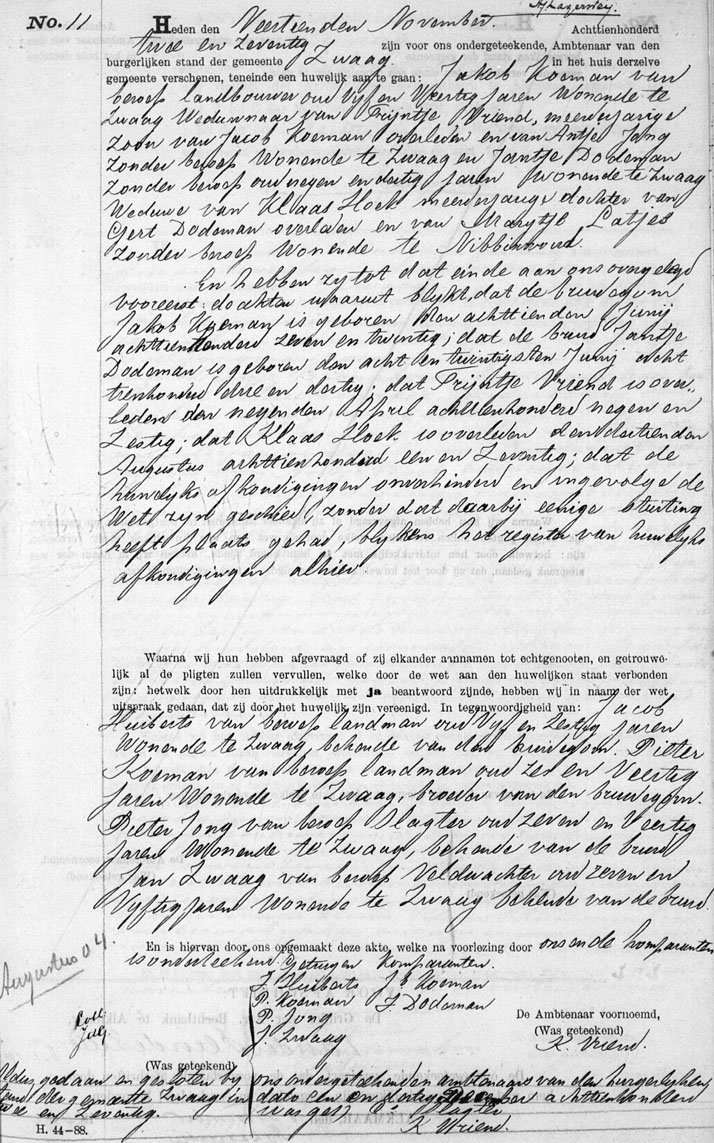 No. 11
Heden den Veertienden November Achttienhonderd
twee en Zeventig zijn voor ons ondergeteekende, Ambtenaar van den
burgerlijken stand der gemeente Zwaag in het huis derzelve
gemeente verschenen, teneinde een huwelijk aan te gaan: Jakob Koeman van
beroep landbouwer oud Vijf en Veertig jaren Wonende te
Zwaag Weduwnaar van Trijntje Vriend, meerderjarige
Zoon van Jacob Koeman overleden en van Antje Jong
Zonder beroep Wonende te Zwaag en Jantje Dodeman
Zonder beroep oud negen en dertig jaren Wonende te Zwaag
Weduwe van Klaas Hoek meerderjarige dochter van
Gert Dodeman overleden en van Marytje Latjes
Zonder beroep Wonende te Nibbixwoud.
En hebben zy tot dat einde aan ons overgelegd
vooreerst: de akten waaruit blykt, dat de bruidegom
Jakob Koeman is geboren den achttienden Junij
achttienhonderd zeven en twintig; dat de bruid Jantje
Dodeman is geboren den acht en twintigsten Junij acht
tienhonderd drie en dertig; dat Trijntje Vriend is over,
leden den negenden April achttienhonderd negen en
Zestig; dat Klaas Hoek is overleden den dertienden
Augustus achttienhonderd een en Zeventig; dat de
huwelyks afkondigingen onverhinderd en ingevolge de
Wet zyn geschied, zonder dat daarbij eenige stuiting
heeft plaats gehad, blykens het register van huwelyks
afkondigingen alhier.
Waarna wij hun hebben afgevraagd of zij elkander aannamen tot echtgenooten, en getrouwe-
lijk al de pligten zullen vervullen, welke door de wet aan den huwelijken staat verbonden
zijn: hetwelk door hen uitdrukkelijk met ja beantwoord zijnde, hebben wij in naam der wet
uitspraak gedaan, dat zij door het huwelijk zijn vereenigd. In tegenwoordigheid van: Jacob
Huiberts van beroep landman oud Vijf en Zestig jaren
Wonende te Zwaag, behoude van den bruidegom. Pieter
Koeman van beroep landman oud zes en Veertig
jaren Wonende te Zwaag, broeder van den bruidegom.
Pieter Jong van beroep Slagter oud zeven en Veertig
jaren Wonende te Zwaag, behoude van de bruid
Jan Zwaag van beroep Veldwachter oud zeven en
Vijftig jaren Wonende te Zwaag bekende van de bruid.
En is hiervan door ons opgemaakt deze akte, welke na voorlezing door ons en de komparanten
is onderteekend. Getuigen Komparanten.
J. Huiberts Jb Koeman
P. Koeman J. Dodeman
P. Jong
J. Zwaag
De Ambtenaar voornoemd,
(Was geteekend)
K. Vriend.
Augustus 04.
(Was geteekend)
Aldus gedaan en gesloten by ons ondergeteekenden ambtenaar van den burgerlyken
stand der gemeente Zwaag den een en dertig December achttienhonderd
twee en Zeventig. (was get) C. Slagter
K. Vriend.
H. 44-88.